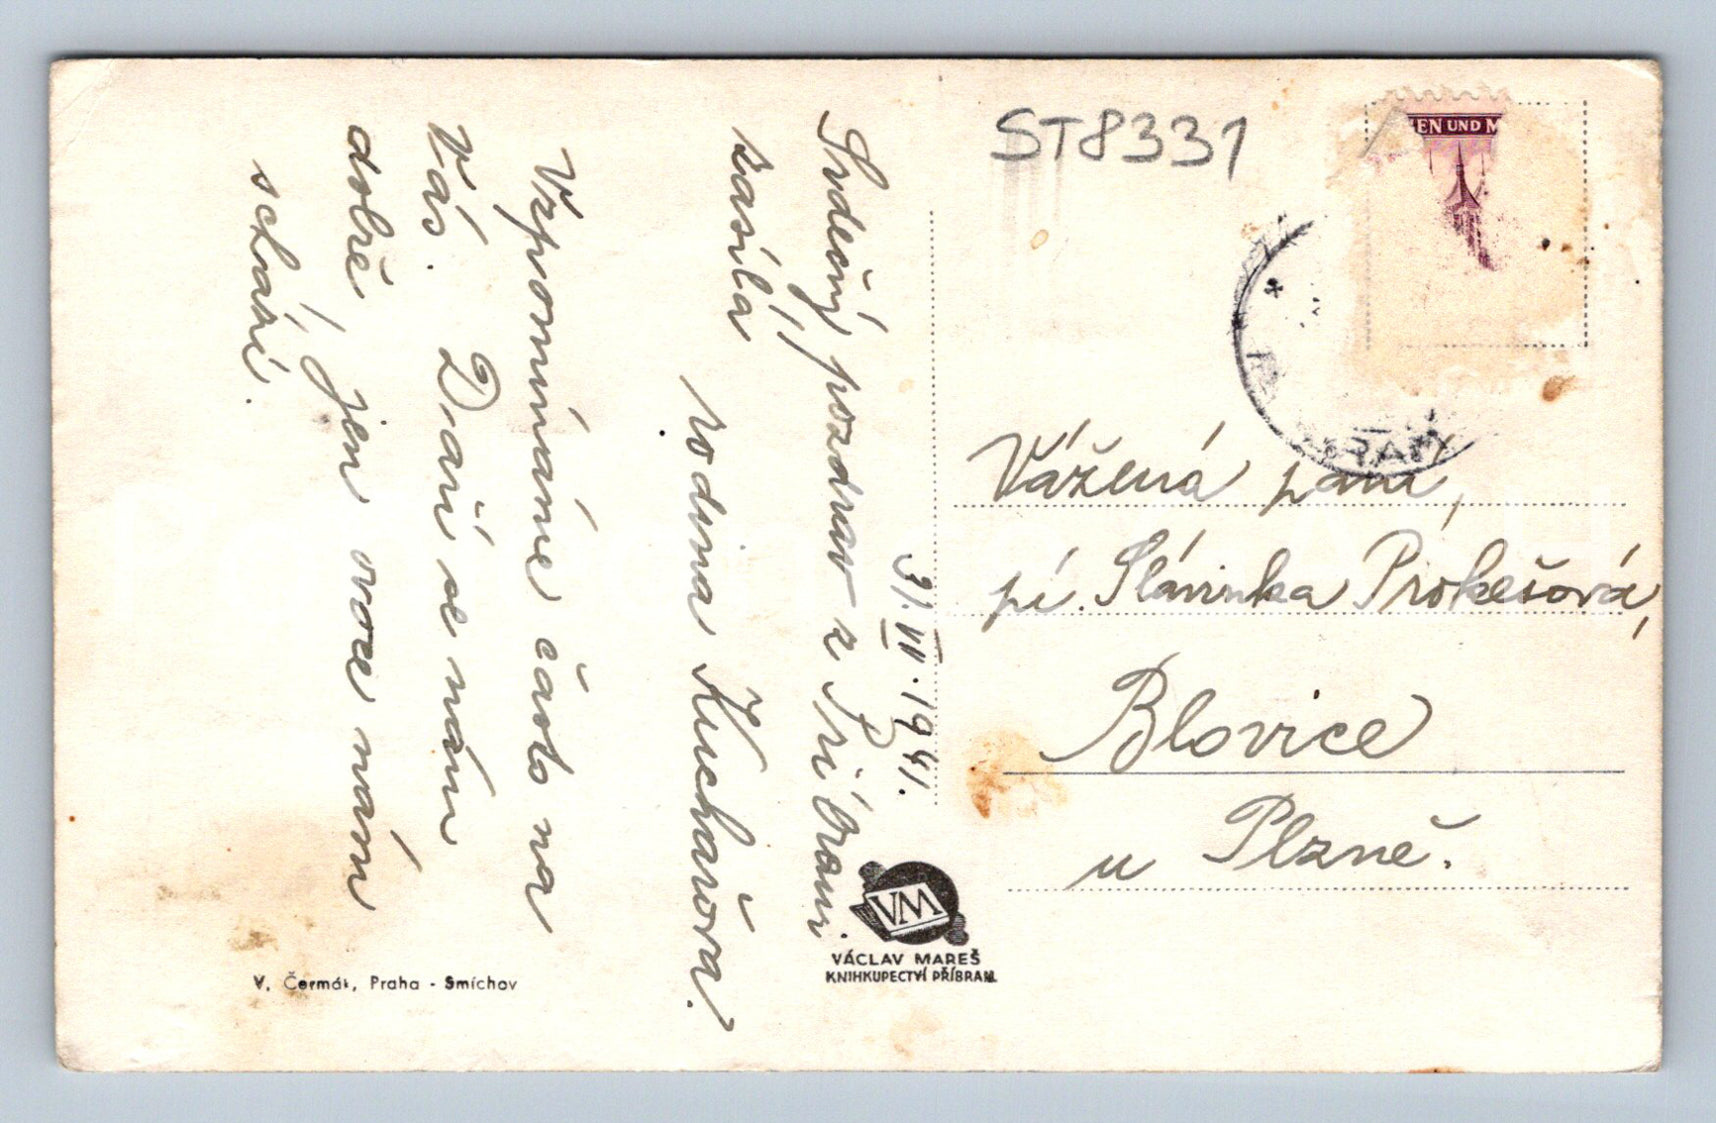 31. VII. 1941.
Srdečný pozdrav z Příbrami
zasílá
rodina Kuchařova.
Vzpomínáme často na
Vás. Daří se nám
dobře, jen ovoce nám
schází.
V. Čermák, Praha - Smíchov
VM
VÁCLAV MAREŠ
KNIHKUPECTVÍ PŘÍBRAM
ST8331
EN UND M
Vážená paní,
pí. Slávinka Prokešová,
Blovice
u Plzně.